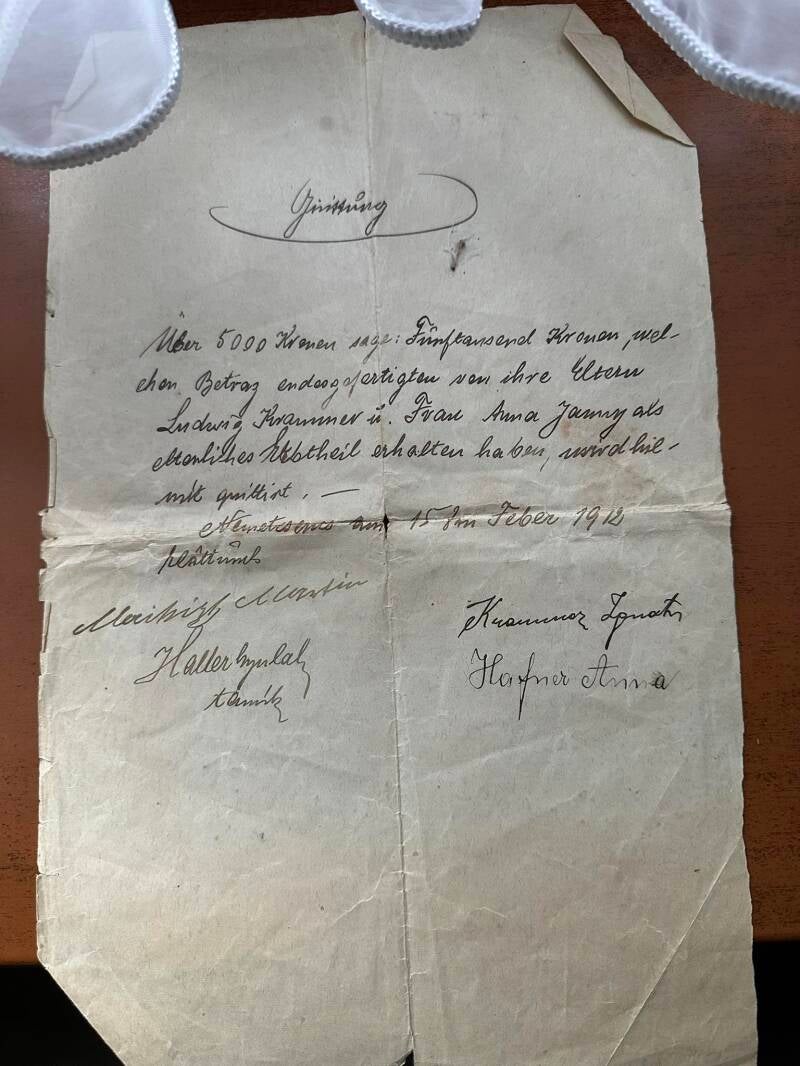 Quittung
Über 5000 Kronen sage: Fünftausend Kronen, wel-
chen Betrag endesgefertigten von ihre Eltern
Ludwig Krammer u. Frau Anna Janny als
Erbtheil erhalten haben, wird hie-
mit quittirt. —
am 15 ten Feber 1912
előttünk
Martin
Haller Gyula
tanúk
Krammer Ignatz
Hafner Anna